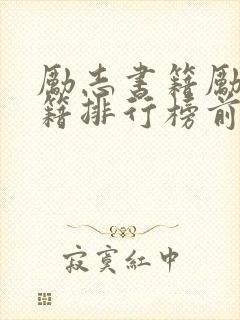 励志书籍励
籍排行榜前
寂寞红中